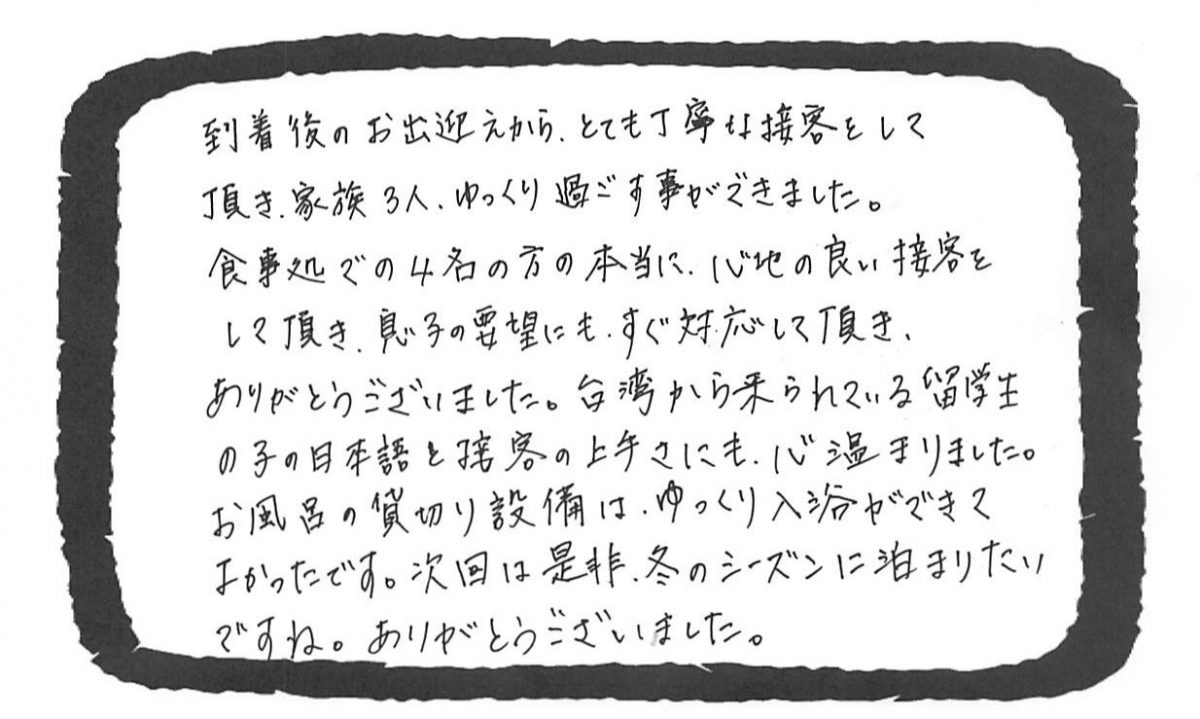 到着後のお出迎えから、とても丁寧な接客をして
頂き、家族3人、ゆっくり過ごす事ができました。
食事処での4名の方の本当に、心地の良い接客を
して頂き、息子の要望にも、すぐ対応して頂き、
ありがとうございました。台湾から来られている留学生
の子の日本語と接客の上手さにも、心温まりました。
お風呂の貸切り設備は、ゆっくり入浴ができて
よかったです。次回は是非、冬のシーズンに泊まりたい
ですね。ありがとうございました。